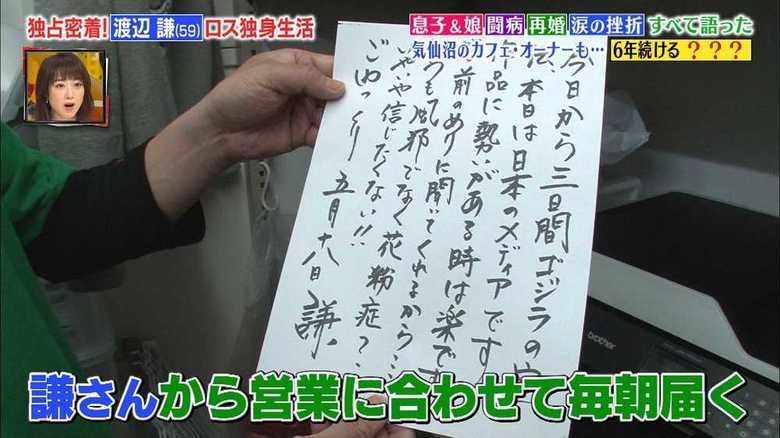 独占密着!渡辺 謙(59)ロス独身生活
息子&娘 闘病 再婚 涙の挫折 すべて語った
気仙沼のカフェ オーナーも…
6年続ける ???
今日から三日間ゴジラの
本日は日本のメディアです
品に勢いがある時は楽で
前のめりに聞いてくれるから
風邪でなく花粉症?
いや信じたくない!!
ごゆっくり
五月十八日 謙
brother
謙さんから営業に合わせて毎朝届く